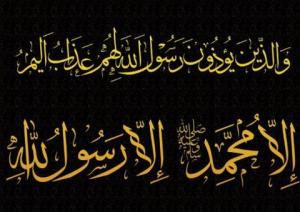 والذين يؤذون رسول الله لهم عذاب أليم
إلا محمد ﷺ إلا رسول الله